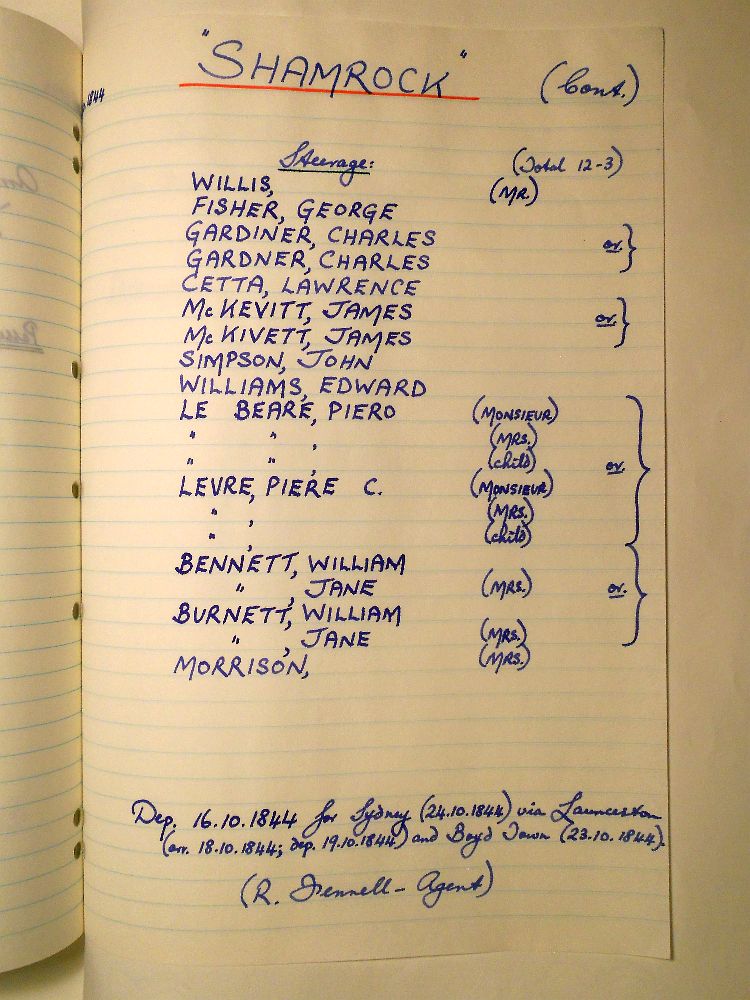 "SHAMROCK" (Cont.)
1844
Steerage: (Total 12-3)
WILLIS, (MR.)
FISHER, GEORGE
GARDINER, CHARLES or. }
GARDNER, CHARLES
CETTA, LAWRENCE
McKEVITT, JAMES or. }
McKIVETT, JAMES
SIMPSON, JOHN
WILLIAMS, EDWARD
LE BEARE, PIERO (MONSIEUR)
" " , (MRS.)
" " , (child) or. }
LEVRE, PIERE C. (MONSIEUR)
" , (MRS.)
" , (child)
BENNETT, WILLIAM
" , JANE (MRS.) or. }
BURNETT, WILLIAM
" , JANE (MRS.)
MORRISON, (MRS.)
Dep. 16.10.1844 for Sydney (24.10.1844) via Launceston
(arr. 18.10.1844; dep. 19.10.1844) and Boyd Town (23.10.1844).
(R. Fennell - Agent)